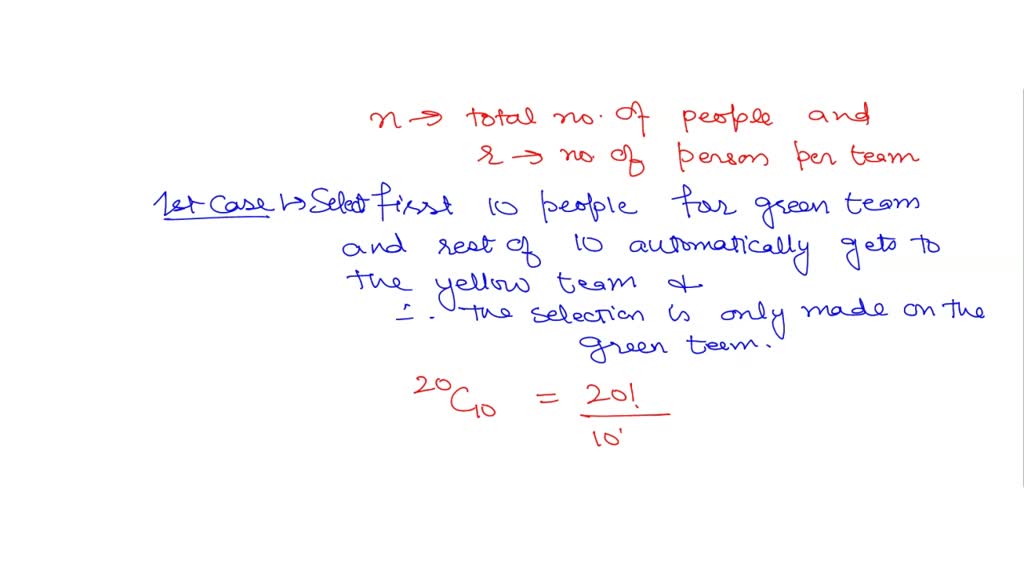 n → total no. of people and
r → no of person per team
1st case → Select first 10 people for green team
and rest of 10 automatically gets to
the yellow team &
∴ the selection is only made on the
green team.
²⁰C₁₀ = 20!
10'